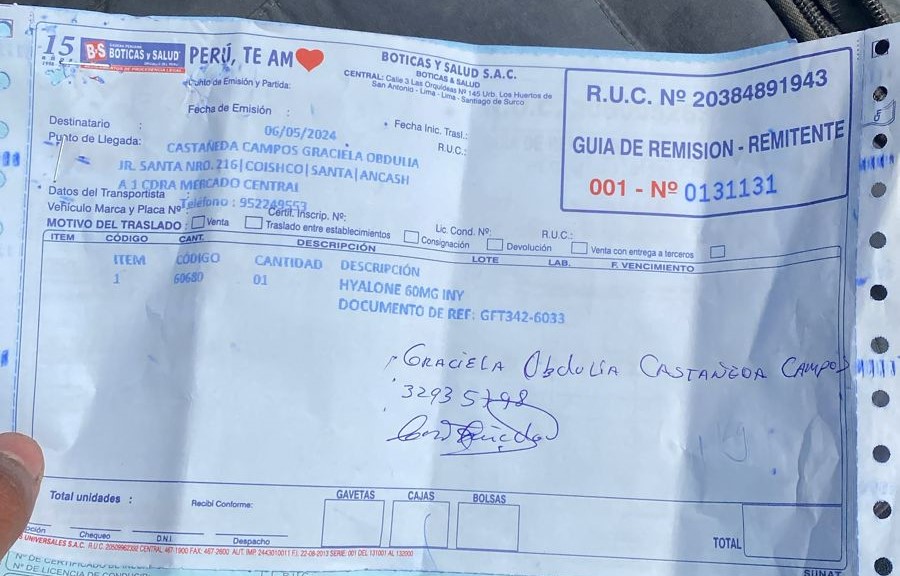 15
B·S BOTICAS Y SALUD
PERÚ, TE AM
BOTICAS Y SALUD S.A.C.
BOTICAS & SALUD
CENTRAL: Calle 3 Las Orquídeas Nº 145 Urb. Los Huertos de
San Antonio - Lima - Lima - Santiago de Surco
R.U.C. Nº 20384891943
GUIA DE REMISION - REMITENTE
001 - Nº 0131131
Punto de Emisión y Partida:
Fecha de Emisión :
06/05/2024
Fecha Inic. Trasl.:
Destinatario :
CASTAÑEDA CAMPOS GRACIELA OBDULIA
R.U.C.:
Punto de Llegada:
JR. SANTA NRO. 216|COISHCO|SANTA|ANCASH
A 1 CDRA MERCADO CENTRAL
Datos del Transportista
Teléfono : 952249553
Vehículo Marca y Placa Nº
Certif. Inscrip. Nº:
Lic. Cond. Nº:
R.U.C.:
MOTIVO DEL TRASLADO: Venta Traslado entre establecimientos Consignación Devolución Venta con entrega a terceros
ITEM CÓDIGO CANT. DESCRIPCIÓN LOTE LAB. F. VENCIMIENTO
ITEM CÓDIGO CANTIDAD DESCRIPCIÓN
1 60680 01 HYALONE 60MG INY
DOCUMENTO DE REF: GFT342-6033
GRACIELA ObdULIA CASTAÑEDA CAMPOS
Total unidades :
Recibí Conforme:
GAVETAS CAJAS BOLSAS
TOTAL
Chequeo D.N.I. Despacho
UNIVERSALES S.A.C. R.U.C. 20509962392 CENTRAL 467-1900 FAX: 467-2600 AUT. IMP. 2443010011 F.I. 22-08-2013 SERIE: 001 DEL 131001 AL 132000
SUNAT
Nº DE LICENCIA DE CONDUCIR